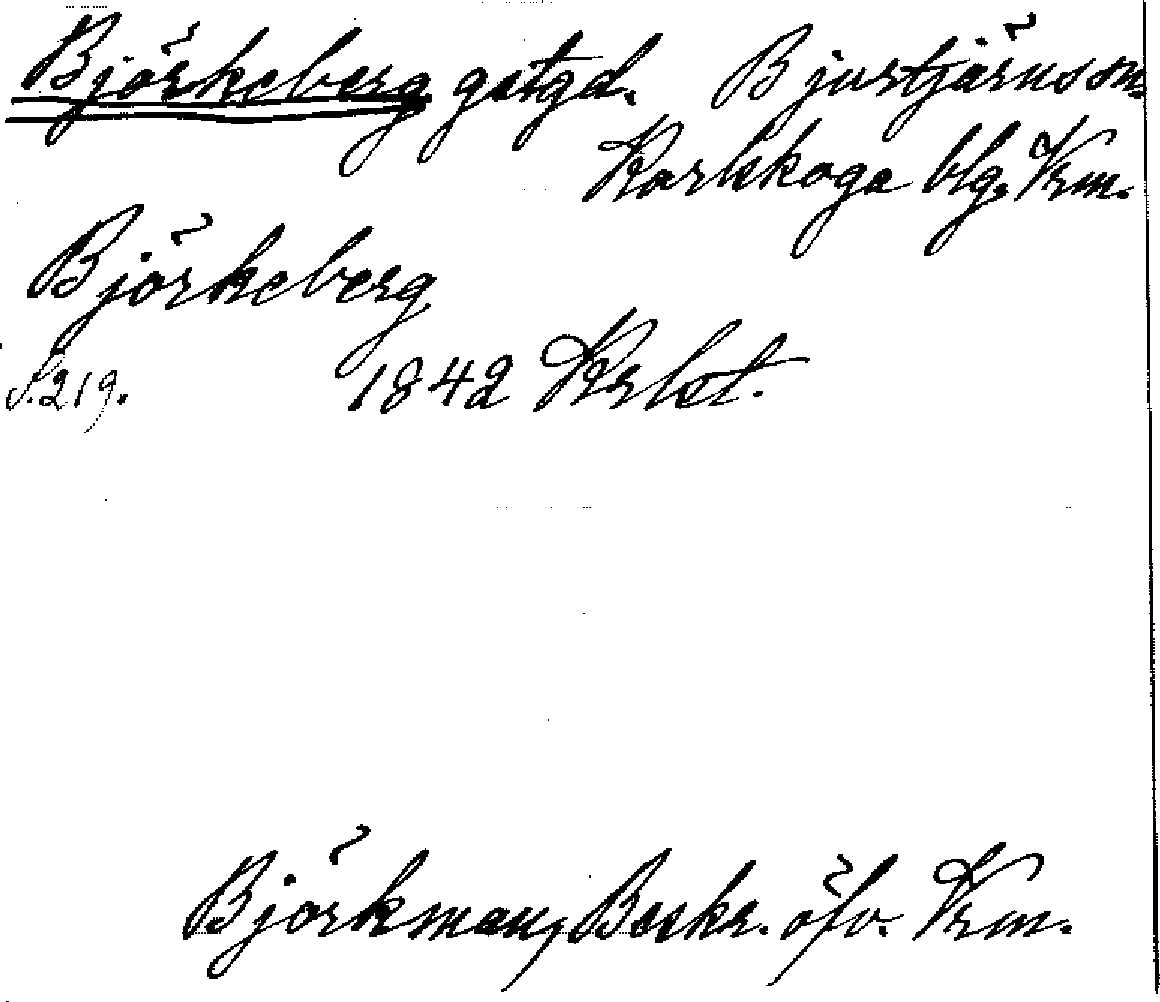 Björkeberg gstgd. Bjurtjärns sn.
Karlskoga blg. Vrm.
Björkeberg
S. 219. 1842 Krlst.
Björkman, Beskr. öfv. Vrm.